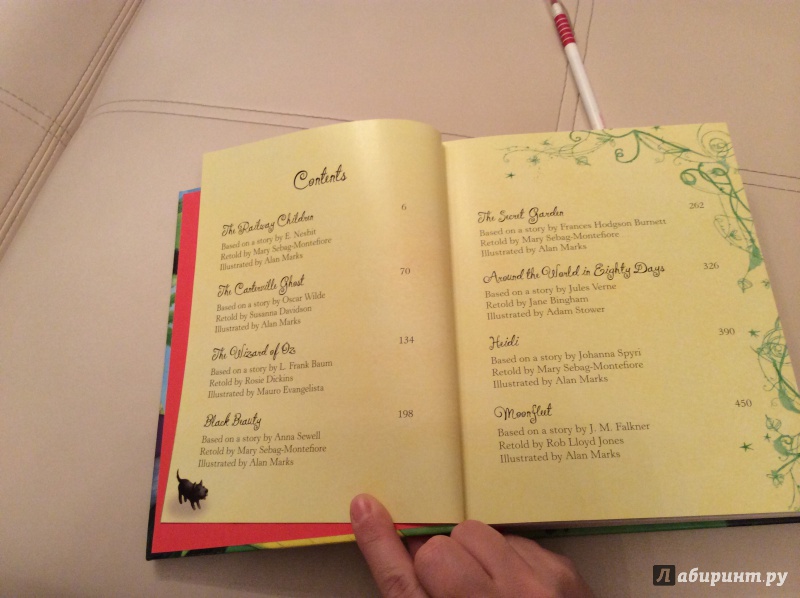 Contents
The Railway Children 6
Based on a story by E. Nesbit
Retold by Mary Sebag-Montefiore
Illustrated by Alan Marks
The Canterville Ghost 70
Based on a story by Oscar Wilde
Retold by Susanna Davidson
Illustrated by Alan Marks
The Wizard of Oz 134
Based on a story by L. Frank Baum
Retold by Rosie Dickins
Illustrated by Mauro Evangelista
Black Beauty 198
Based on a story by Anna Sewell
Retold by Mary Sebag-Montefiore
Illustrated by Alan Marks
The Secret Garden 262
Based on a story by Frances Hodgson Burnett
Retold by Mary Sebag-Montefiore
Illustrated by Alan Marks
Around the World in Eighty Days 326
Based on a story by Jules Verne
Retold by Jane Bingham
Illustrated by Adam Stower
Heidi 390
Based on a story by Johanna Spyri
Retold by Mary Sebag-Montefiore
Illustrated by Alan Marks
Moonfleet 450
Based on a story by J. M. Falkner
Retold by Rob Lloyd Jones
Illustrated by Alan Marks
Лабиринт.ру